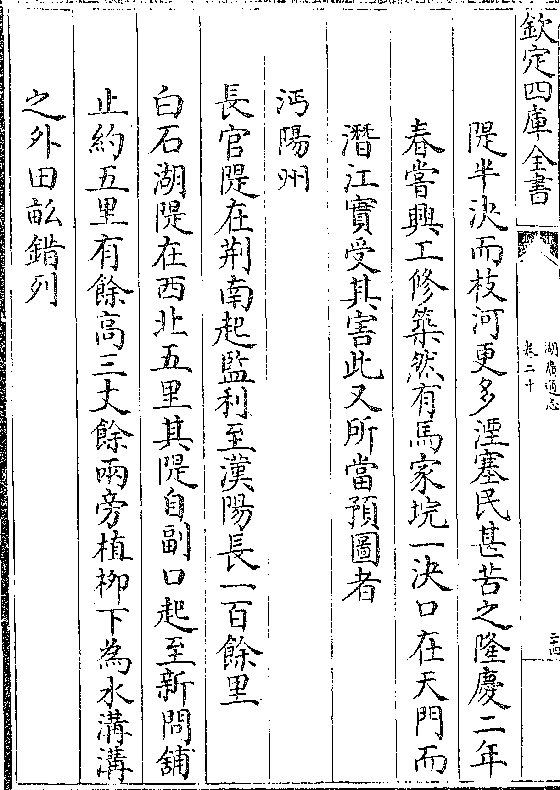 欽定四庫全書
湖廣通志
卷二十
二十四
隄半決而枝河更多湮塞民甚苦之隆慶二年
春嘗興工修築然有馬家垸一決口在天門而
潛江實受其害此又所當預圖者
沔陽州
長官隄在荆南起監利至漢陽長一百餘里
白石湖隄在西北五里其隄自副口起至新問舖
止約五里有餘高三丈餘兩旁植栁下為水溝溝
之外田畝錯列